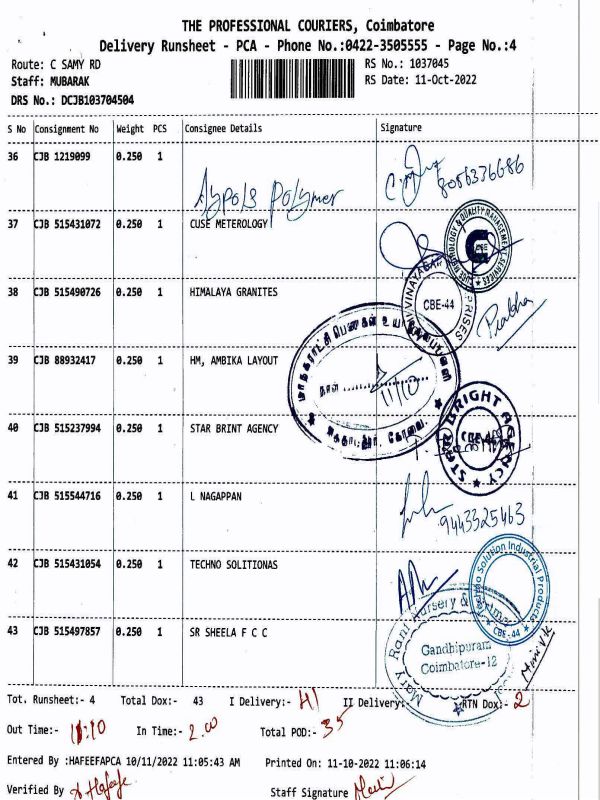 THE PROFESSIONAL COURIERS, Coimbatore
Delivery Runsheet - PCA - Phone No.:0422-3505555 - Page No.:4
Route: C SAMY RD
RS No.: 1037045
Staff: MUBARAK
RS Date: 11-Oct-2022
DRS No.: DCJB103704504
S No Consignment No Weight PCS Consignee Details Signature
36 CJB 1219099 0.250 1
Aypols Polymer
8056336686
37 CJB 515431072 0.250 1 CUSE METEROLOGY
38 CJB 515490726 0.250 1 HIMALAYA GRANITES
VINAYAGA
CBE-44
Prabha
39 CJB 88932417 0.250 1 HM, AMBIKA LAYOUT
நாள்
11/10
40 CJB 515237994 0.250 1 STAR BRINT AGENCY
STAR BRIGHT AGENCY
CBE-44
41 CJB 515544716 0.250 1 L NAGAPPAN
9443325463
42 CJB 515431054 0.250 1 TECHNO SOLITIONAS
Techno Solution Industrial Products
CBE-44
43 CJB 515497857 0.250 1 SR SHEELA F C C
Mary Rani Nursery &
Gandhipuram
Coimbatore-12
Tot. Runsheet:- 4 Total Dox:- 43 I Delivery:- 41 II Delivery:- RTN Dox:- 2
Out Time:- 11.10 In Time:- 2.00 Total POD:- 35
Entered By :HAFEEFAPCA 10/11/2022 11:05:43 AM Printed On: 11-10-2022 11:06:14
Verified By
Staff Signature